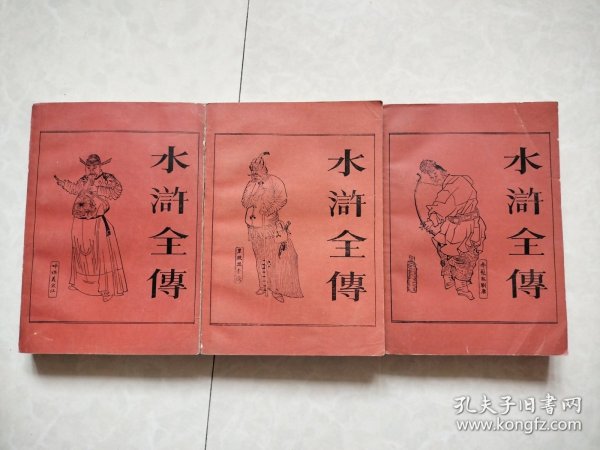 水滸全傳
水滸全傳
水滸全傳
孔夫子旧书网
www.kongfz.com